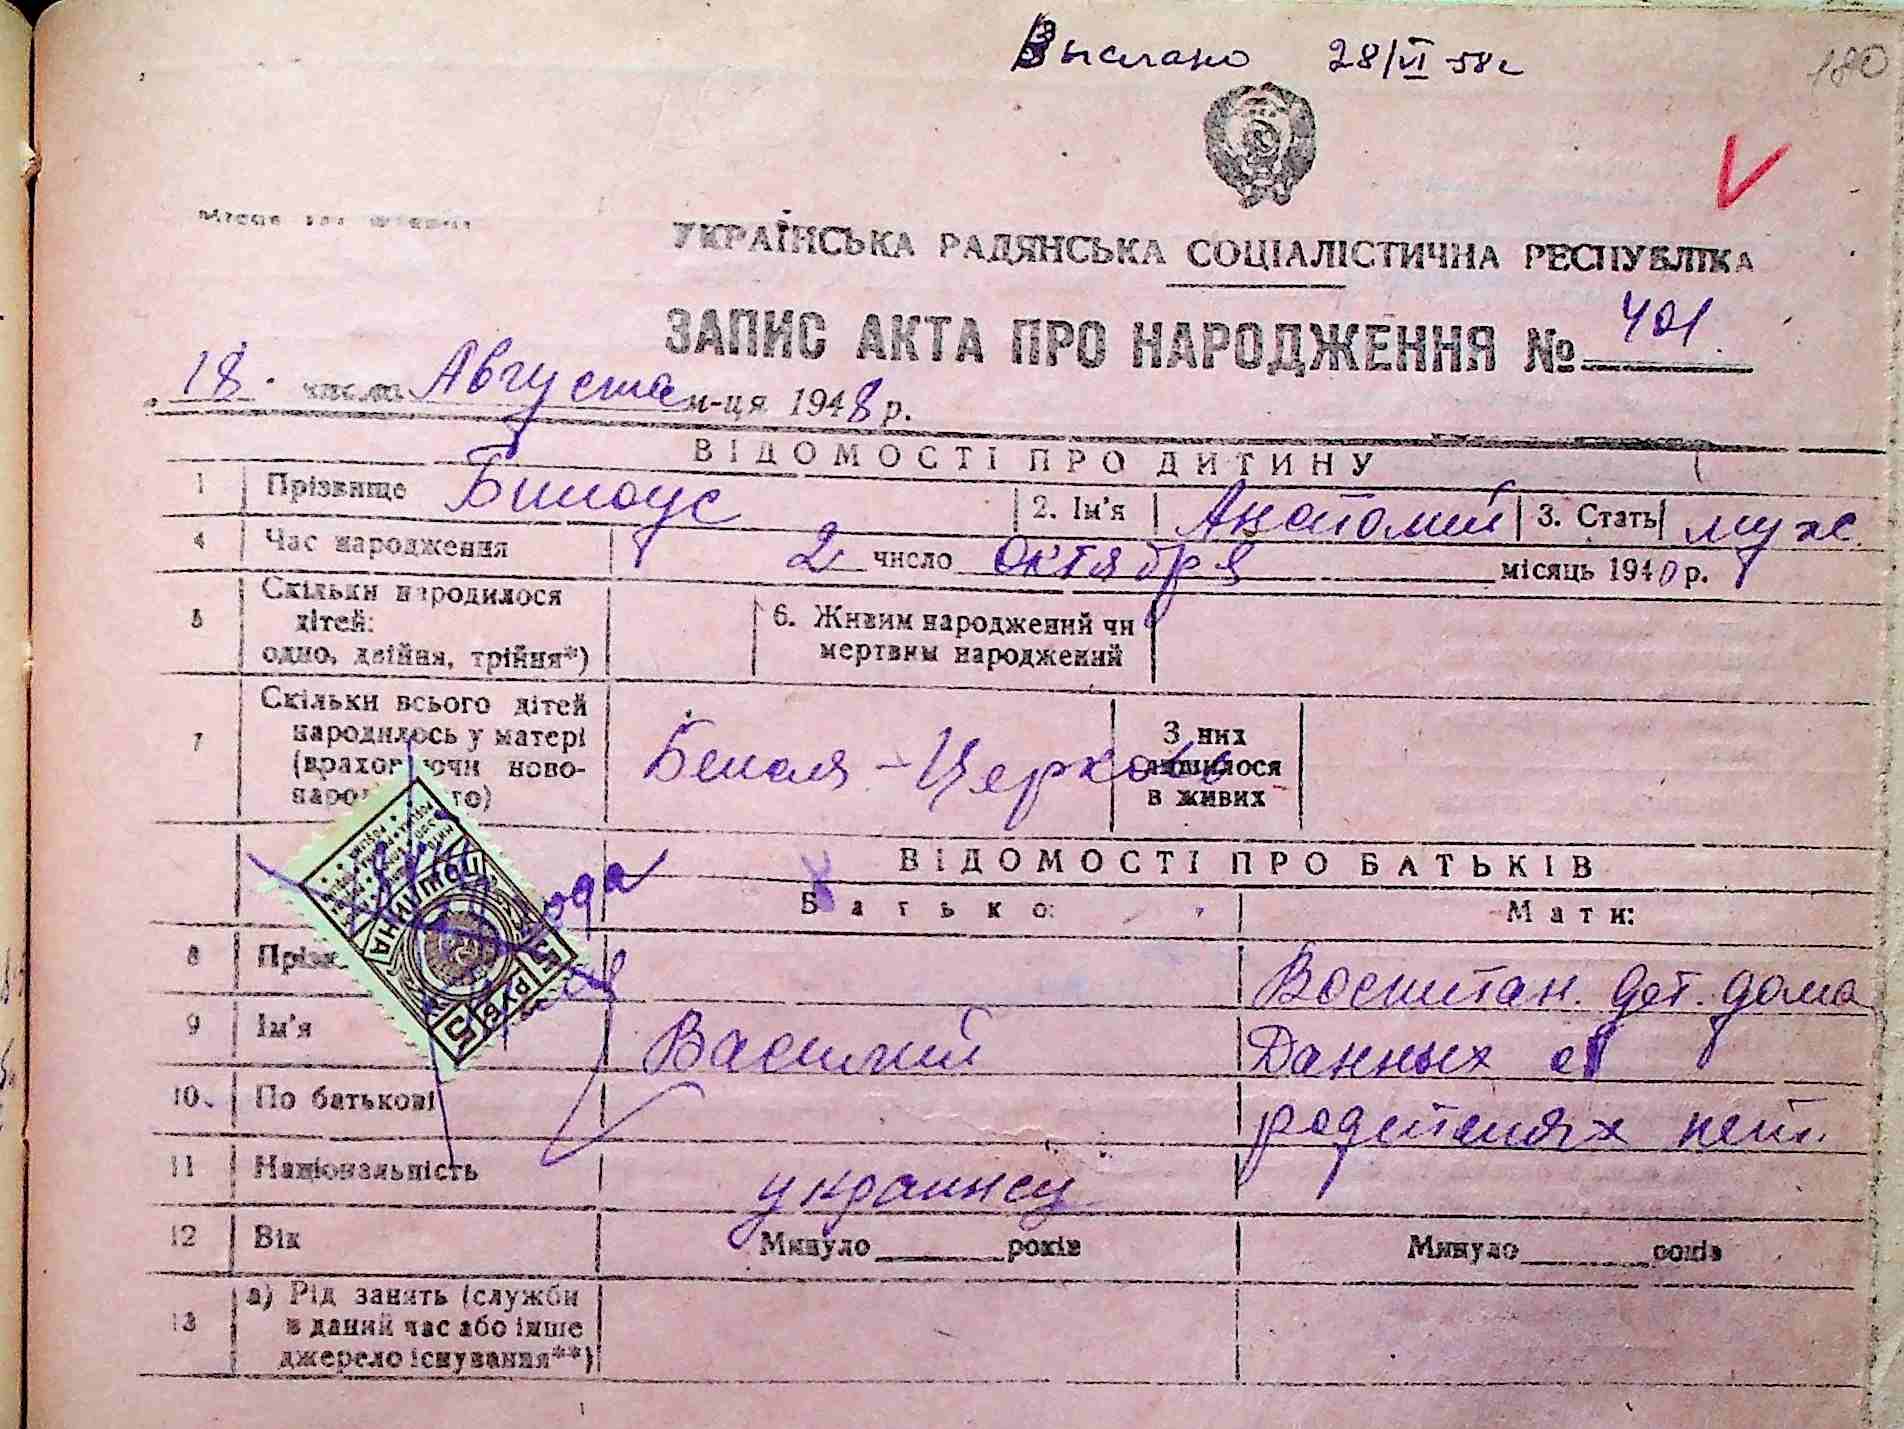 Выслано 28/VI 58 г
180
V
Місце для штампу
УКРАЇНСЬКА РАДЯНСЬКА СОЦІАЛІСТИЧНА РЕСПУБЛІКА
ЗАПИС АКТА ПРО НАРОДЖЕННЯ № 401.
„18" числа Августа м-ця 1948 р.
ВІДОМОСТІ ПРО ДИТИНУ
1 Прізвище Билоус 2. Ім'я Анатолий 3. Стать муж.
4 Час народження 2 число октября місяць 1940 р.
5 Скільки народилося
дітей:
одно, двійня, трійня*)
6. Живим народжений чи
мертвим народжений
7 Скільки всього дітей
народилось у матері
(враховуючи ново-
народженого)
Белая-Церковь
З них
лишилося
в живих
ВІДОМОСТІ ПРО БАТЬКІВ
Батько: Мати:
8 Прізв Воспитан. дет. дома
9 Ім'я Василий Данных о
10. По батькові родителях нет.
11 Національність украинец
12 Вік Минуло ______ років Минуло ______ років
13 а) Рід занять (служби
в даний час або інше
джерело існування**)
5 РУБ 5